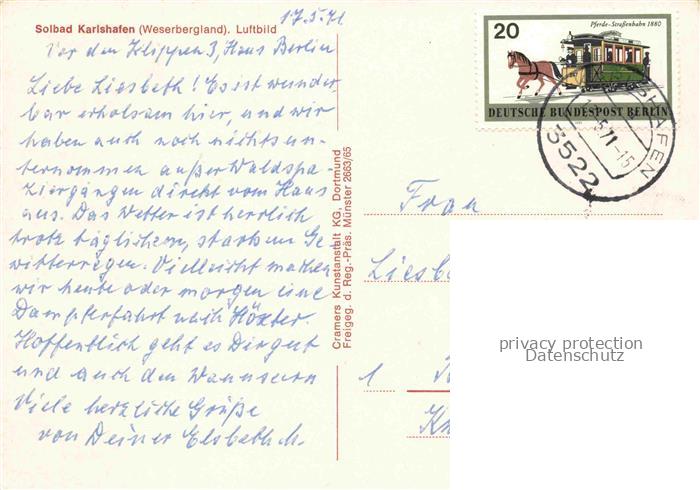 Solbad Karlshafen (Weserbergland). Luftbild
17.5.71
Vor den Klippen 3, Haus Berlin
Liebe Liesbeth! Es ist wunder
bar erholsam hier, und wir
haben auch noch nichts un-
ternommen außer Waldspa
ziergängen direkt vom Haus
aus. Das Wetter ist herrlich
trotz täglichem, starkem Ge
witterregen. Vielleicht machen
wir heute oder morgen eine
Dampferfahrt nach Höxter.
Hoffentlich geht es Dir gut
und auch den Wannseern
Viele herzliche Grüße
von Deiner Elsbeth M.
Cramers Kunstanstalt KG, Dortmund
Freigeg. d. Reg.-Präs. Münster 2663/65
20
Pferde-Straßenbahn 1880
DEUTSCHE BUNDESPOST BERLIN
3522
HAFEN
5.71-15
Frau
Liesb
1
privacy protection
Datenschutz